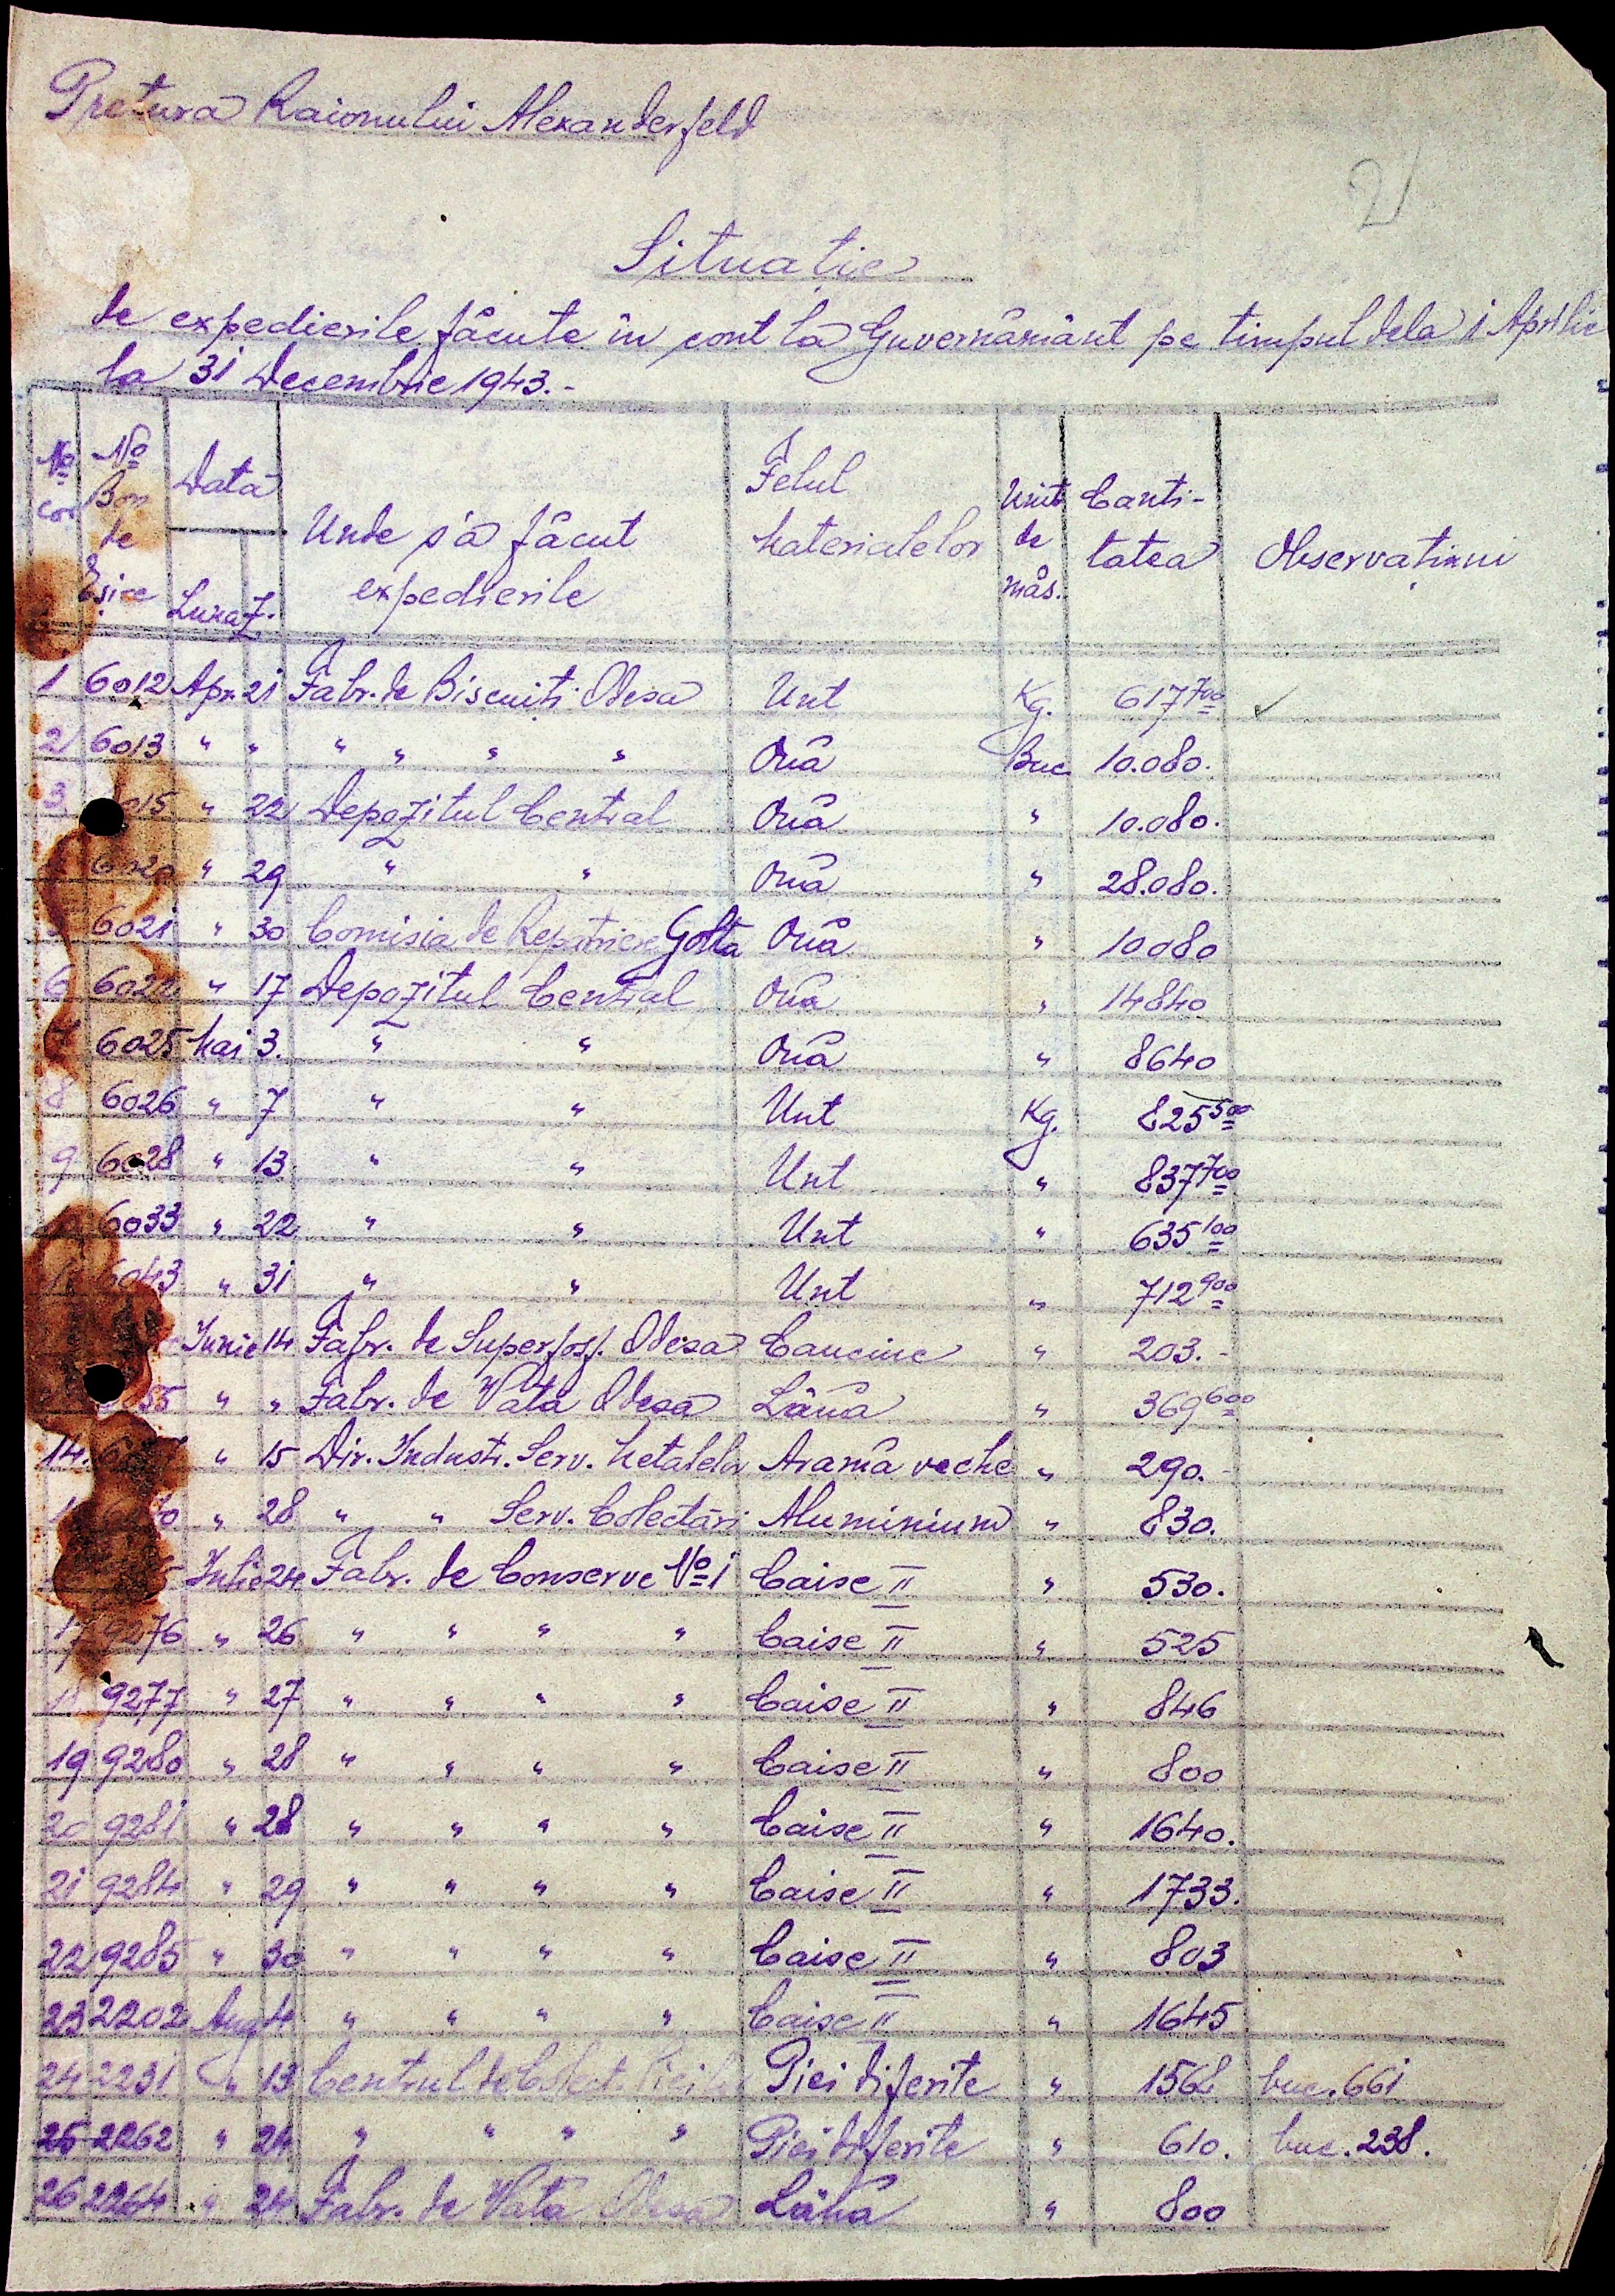 Pretura Raionului Alexanderfeld
2
Situaţie
de expedierile făcute în cont la Guvernământ pe timpul dela 1 Aprilie
la 31 Decembrie 1943.-
No cor | No Bon de Eşire | Data Luna Z. | Unde s'a făcut expedierile | Felul Materialelor | Unit de măs. | Canti-tatea | Observaţiuni
1 6012 Apr. 21 Fabr. de Biscuiţi Odesa Unt Kg. 617 700 ✓
2 6013 " " " " " " Ouă Buc. 10.080.
3 015 " 22 Depozitul Central Ouă " 10.080.
6020 " 29 " " Ouă " 28.080.
6021 " 30 Comisia de Repatriere Golta Ouă " 10080
6 6022 " 17 Depozitul Central Ouă " 14840
6025 Mai 3. " " Ouă " 8640
8 6026 " 7 " " Unt Kg. 825 500
9 6028 " 13 " " Unt " 837 700
6033 " 22 " " Unt " 635 100
6043 " 31 " " Unt " 712 900
Junie 14 Fabr. de Superfosf. Odesa Cauciuc " 203.-
55 " " Fabr. de Vata Odesa Lână " 369 600
14. " 15 Dir. Industr. Serv. Metalelor Aramă veche " 290.-
" 28 " " Serv. Colectări Aluminium " 830.
Julie 24 Fabr. de Conserve No 1 Caise II " 530.
17 9276 " 26 " " " " Caise II " 525
18 9277 " 27 " " " " Caise II " 846
19 9280 " 28 " " " " Caise II " 800
20 9281 " 28 " " " " Caise II " 1640.
21 9284 " 29 " " " " Caise II " 1733.
22 9285 " 30 " " " " Caise II " 803
23 2202 Aug 4 " " " " Caise II " 1645
24 2231 " 13 Centrul de Colect. Piei diferite " 1568 buc. 661
25 2262 " 24 " " " " Piei diferite " 610. buc. 238.
26 2264 " 24 Fabr. de Vata Odesa Lână " 800